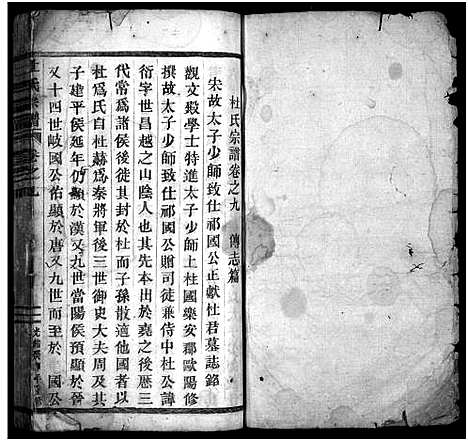 杜氏宗譜卷之九　傳志篇
宋故太子少師致仕祁國公正獻杜君墓誌銘
觀文殿學士特進太子少師上柱國樂安郡歐陽修
撰故太子少師致仕祁國公贈司徒兼侍中杜公諱
衍字世昌越之山陰人也其先本出於堯之後歷三
代常爲諸侯後徙其封於杜而子孫散適他國者以
杜爲氏自杜赫爲秦將軍後三世御史大夫周及其
子建平侯延年仍顯於漢又九世當陽侯預顯於晉
又十四世岐國公佑顯於唐又九世而至於　國公
杜氏宗譜　卷之九